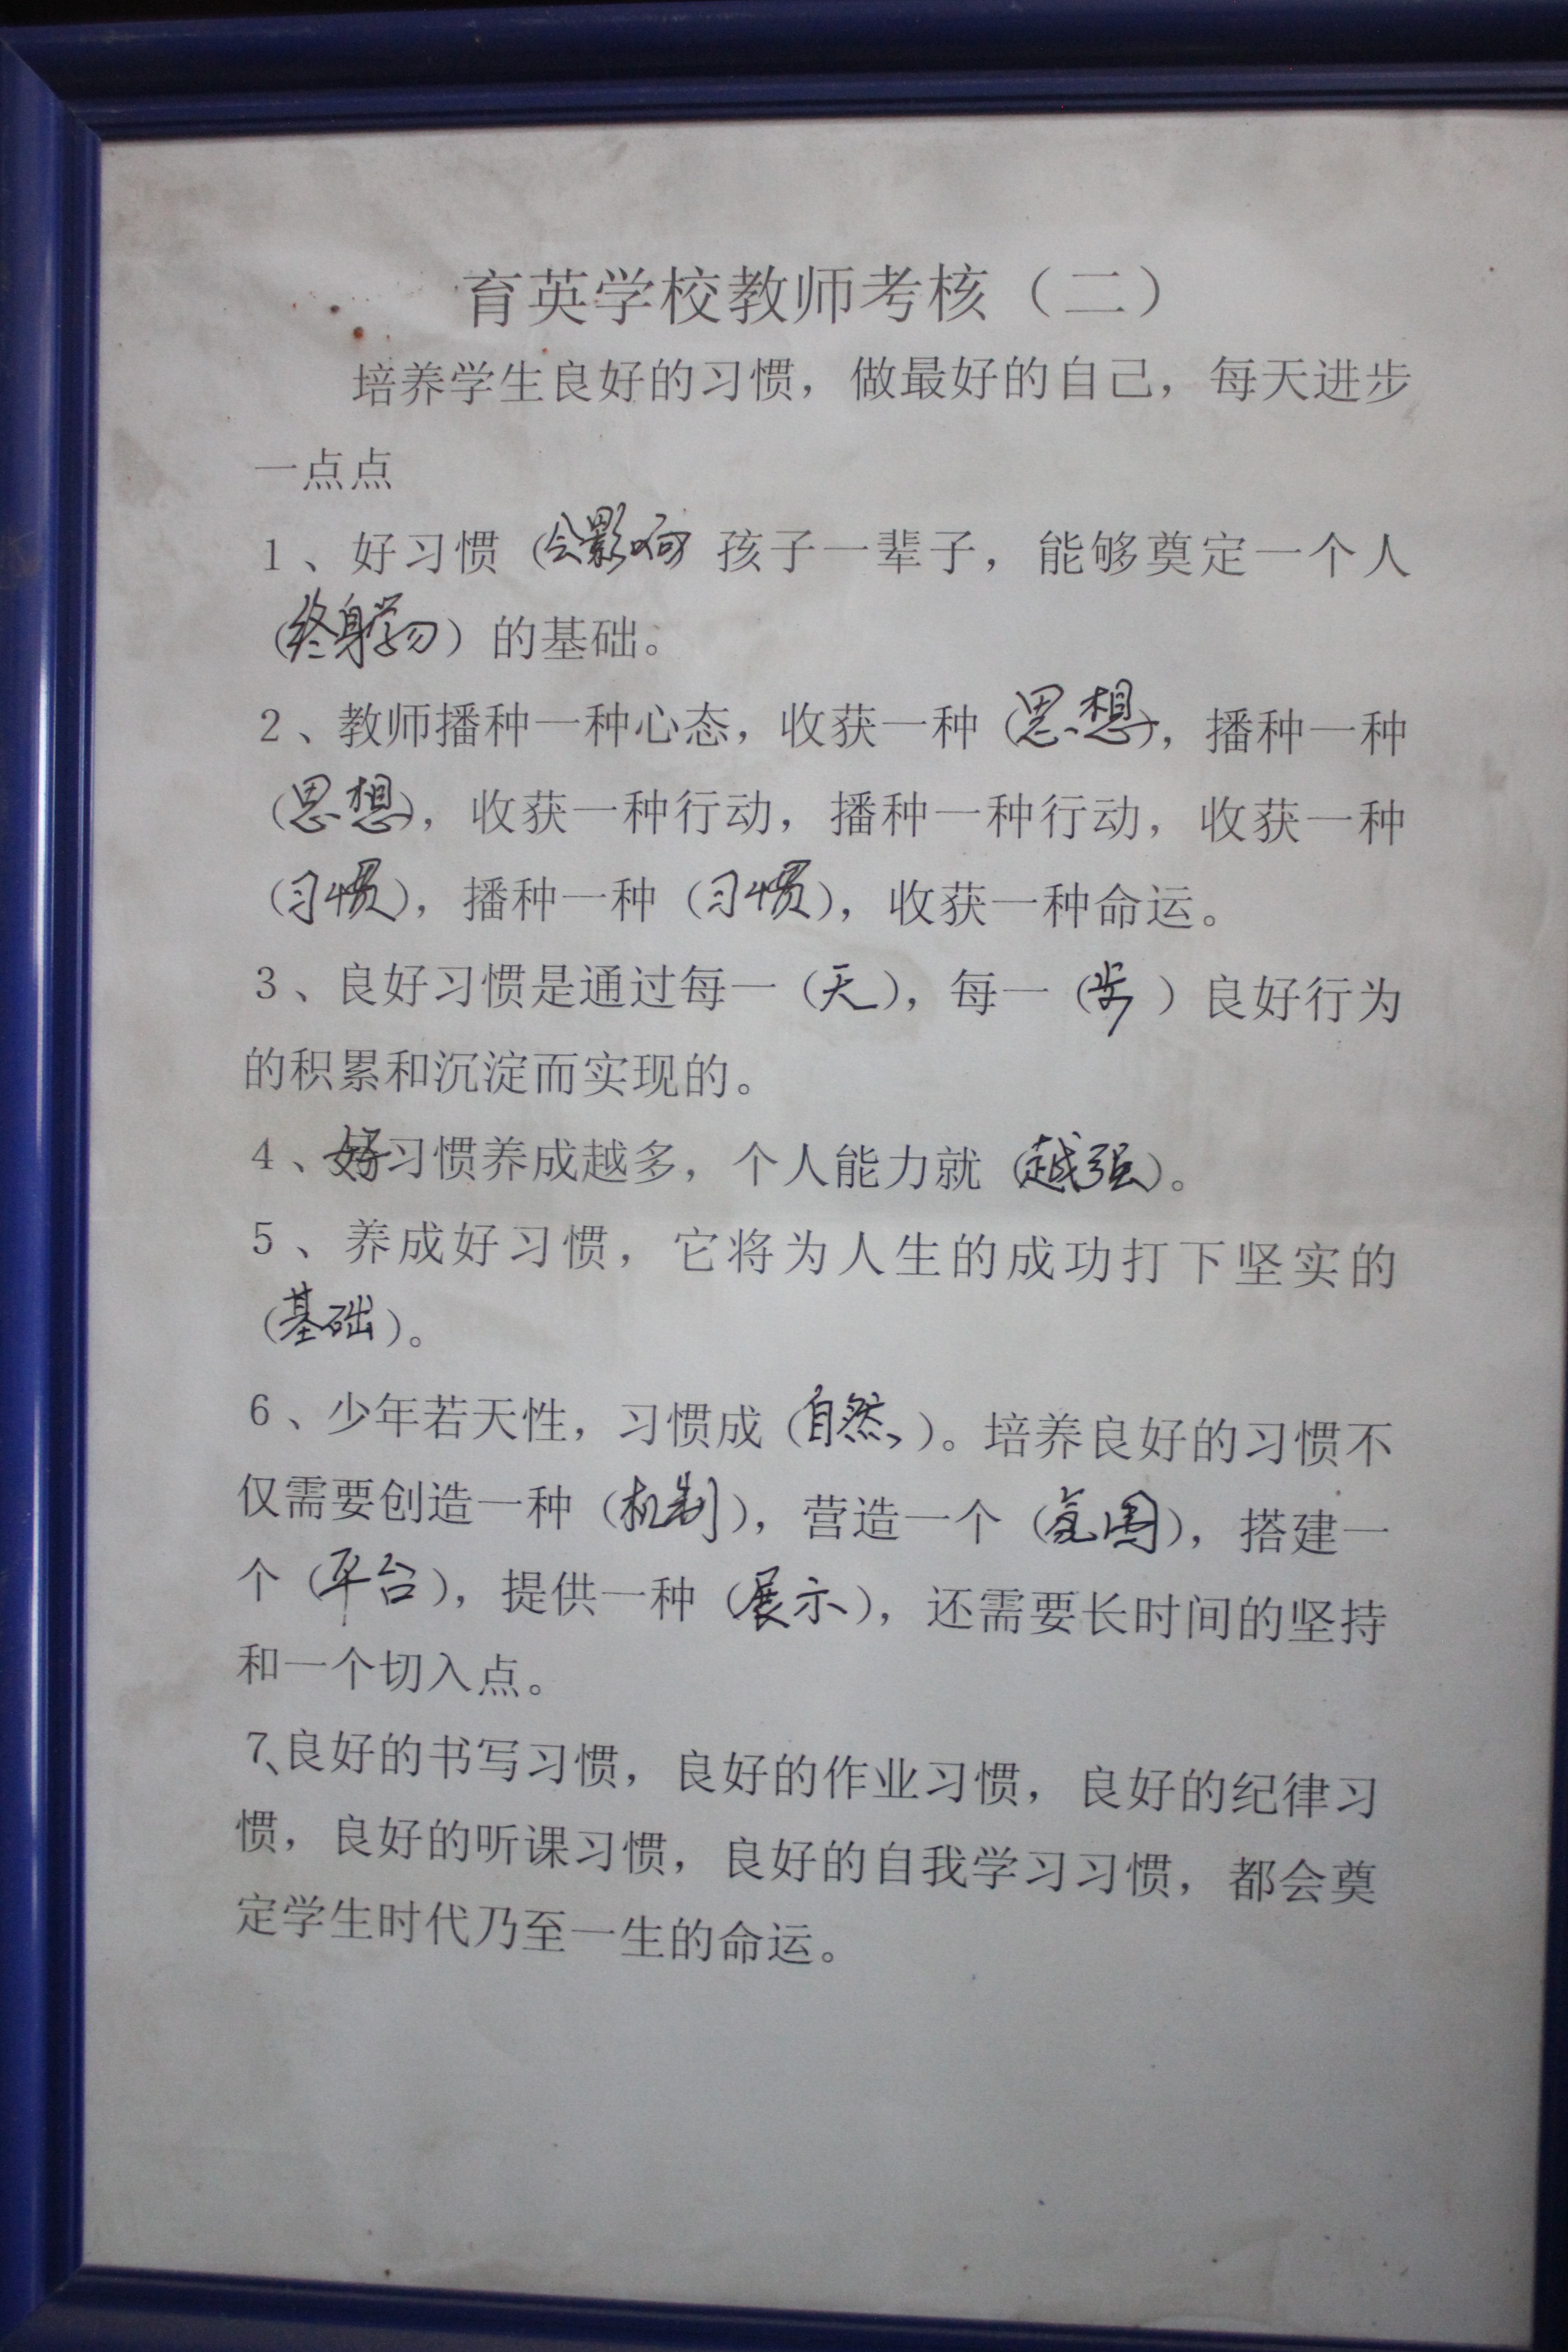 育英学校教师考核（二）
培养学生良好的习惯，做最好的自己，每天进步
一点点
1、好习惯（会影响）孩子一辈子，能够奠定一个人
（终身学习）的基础。
2、教师播种一种心态，收获一种（思想），播种一种
（思想），收获一种行动，播种一种行动，收获一种
（习惯），播种一种（习惯），收获一种命运。
3、良好习惯是通过每一（天），每一（步）良好行为
的积累和沉淀而实现的。
4、好习惯养成越多，个人能力就（越强）。
5、养成好习惯，它将为人生的成功打下坚实的
（基础）。
6、少年若天性，习惯成（自然）。培养良好的习惯不
仅需要创造一种（机制），营造一个（氛围），搭建一
个（平台），提供一种（展示），还需要长时间的坚持
和一个切入点。
7、良好的书写习惯，良好的作业习惯，良好的纪律习
惯，良好的听课习惯，良好的自我学习习惯，都会奠
定学生时代乃至一生的命运。